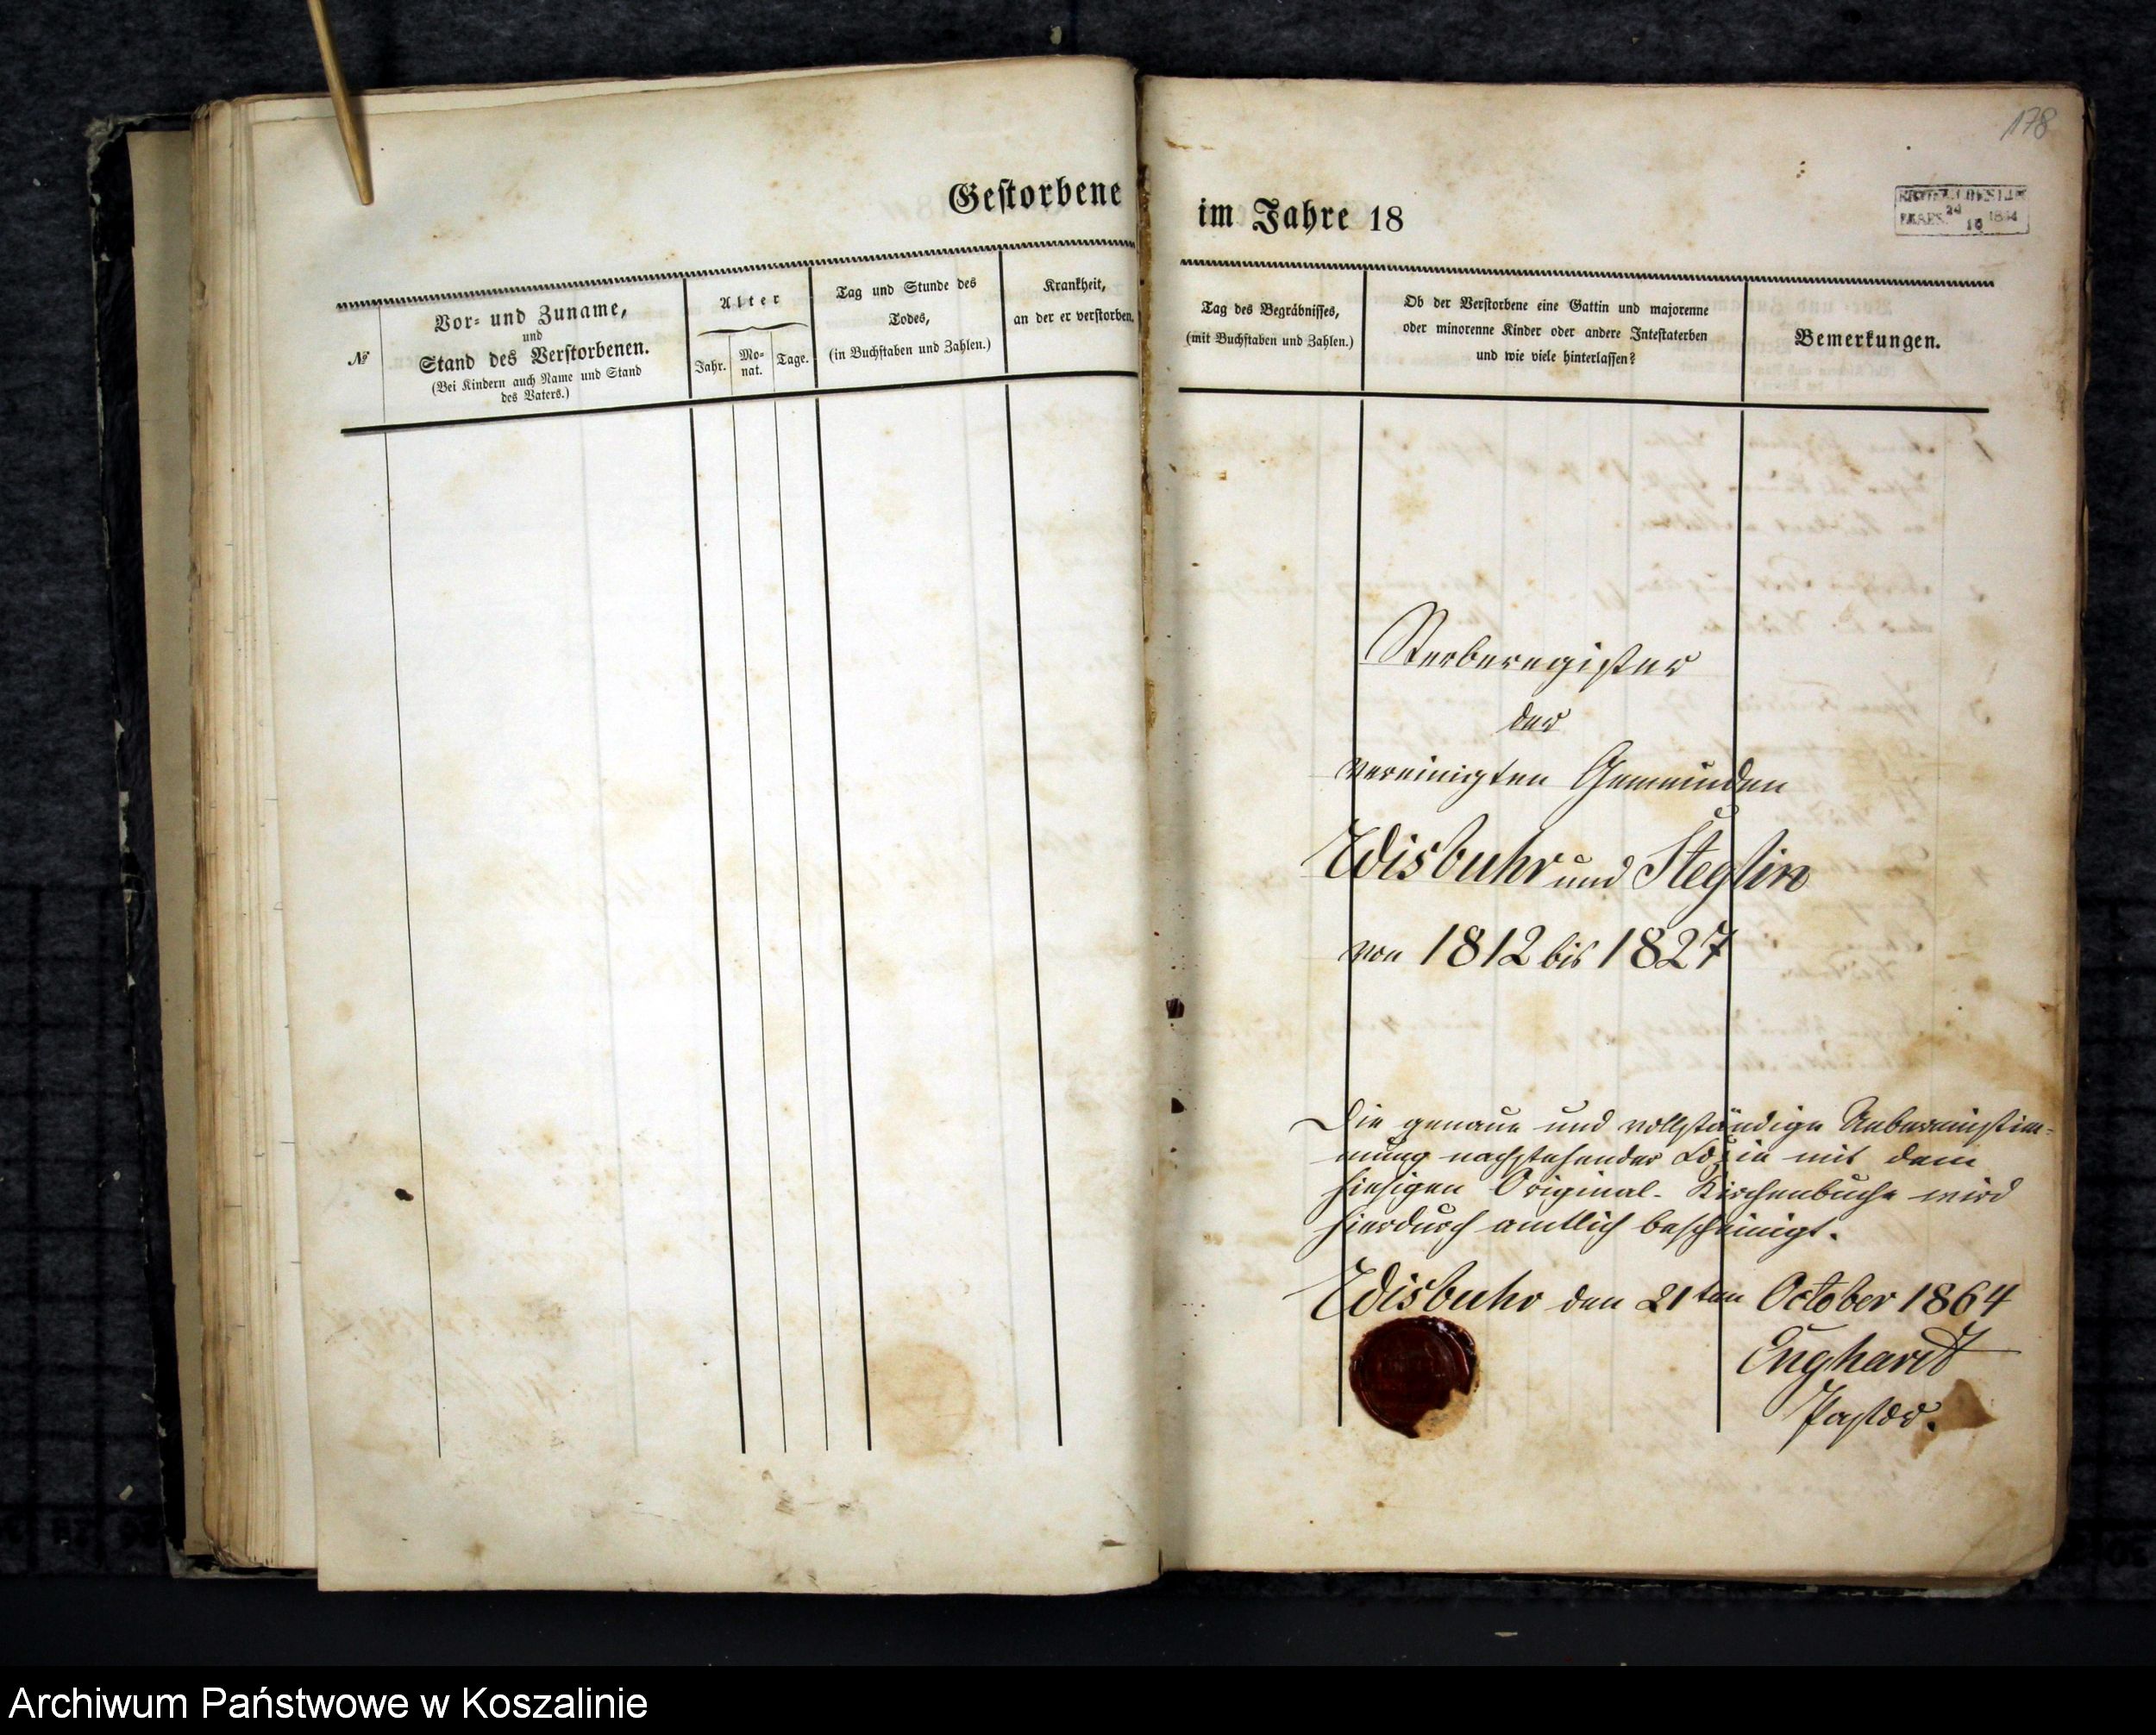 Gestorbene
№
Vor- und Zuname,
und
Stand des Verstorbenen.
(Bei Kindern auch Name und Stand
des Vaters.)
Alter
Jahr.
Mo-
nat.
Tage.
Tag und Stunde des
Todes,
(in Buchstaben und Zahlen.)
Krankheit,
an der er verstorben.
178
im Jahre 18
Tag des Begräbnisses,
(mit Buchstaben und Zahlen.)
Ob der Verstorbene eine Gattin und majorenne
oder minorenne Kinder oder andere Intestaterben
und wie viele hinterlassen?
Bemerkungen.
Sterberegister
der
vereinigten Gemeinden
Wisbuhr und Steglin
von 1812 bis 1827
Die genaue und vollständige Uebereinstim-
mung nachstehender Copie mit dem
hiesigen Original-Kirchenbuche wird
hierdurch amtlich bescheinigt.
Wisbuhr den 21ten October 1864
Enghardt
Pastor.
Archiwum Państwowe w Koszalinie